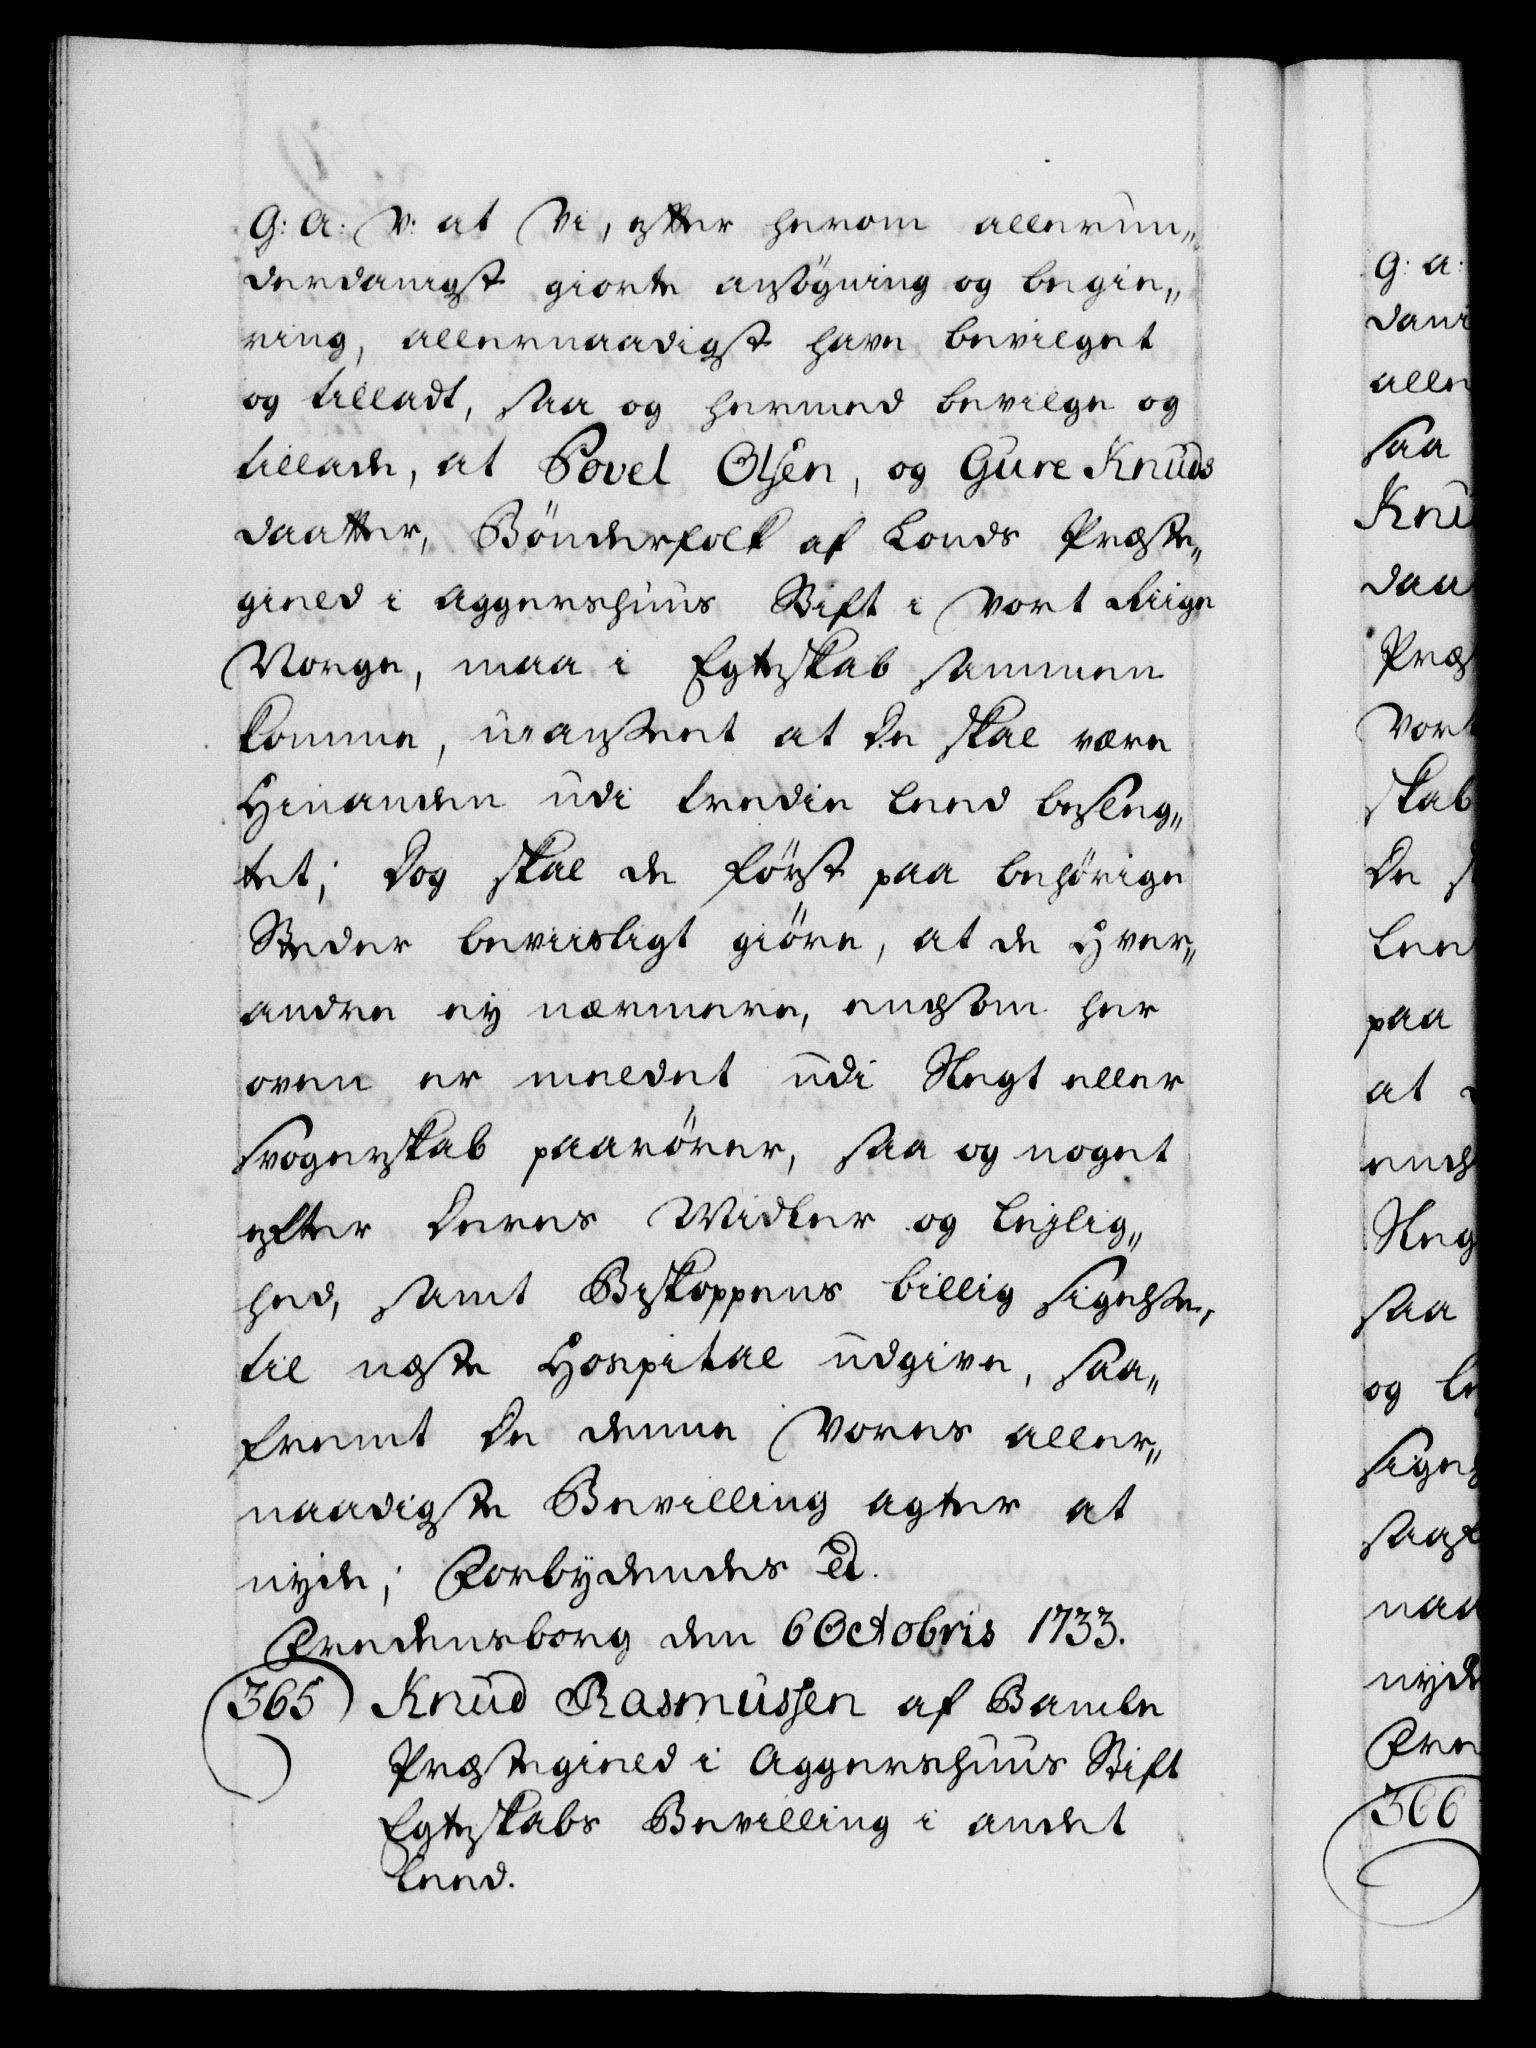 G: A: V: at Vi, efter herom allerun„
derdanigst giorte ansögning og begie„
ring, allernaadigst have bevilget
og tilladt, saa og hermed bevilge og
tillade, at Povel Olsen, og Gure Knuds
daatter, Bönderfolk af Præste„
gield i Aggershuus Stift i Vort Riige
Norge, maa i Egteskab sammen
komme, uanseet at De skal være
Hinanden udi tredie Leed beslæg„
tet; Dog skal de först paa behörige
Steder beviisligt giöre, at de Hver„
andre ey nærmere, end som her
oven er meldet udi Slegt eller
Svogerskab paarörer, saa og noget
efter Deres Midler og Lejlig„
hed, samt Biskoppens billig sigelse,
til næste Hospital udgive, saa„
fremt De denne Vores aller„
naadigste Bevilling agter at
nyde; Forbydendes etc.
Fredensborg den 6 Octobris 1733.
365 Knud Rasmussen af Bamble
Præstegield i Aggershuus Stift
Egteskabs Bevilling i andet
Leed.
G: A:
dani
alle
saa
Knu
daa
Præs
Vort
skab
De s
Lee
paa
at
end
Sleg
saa
og Le
sigel
saaf
naa
nyde
Fre
366